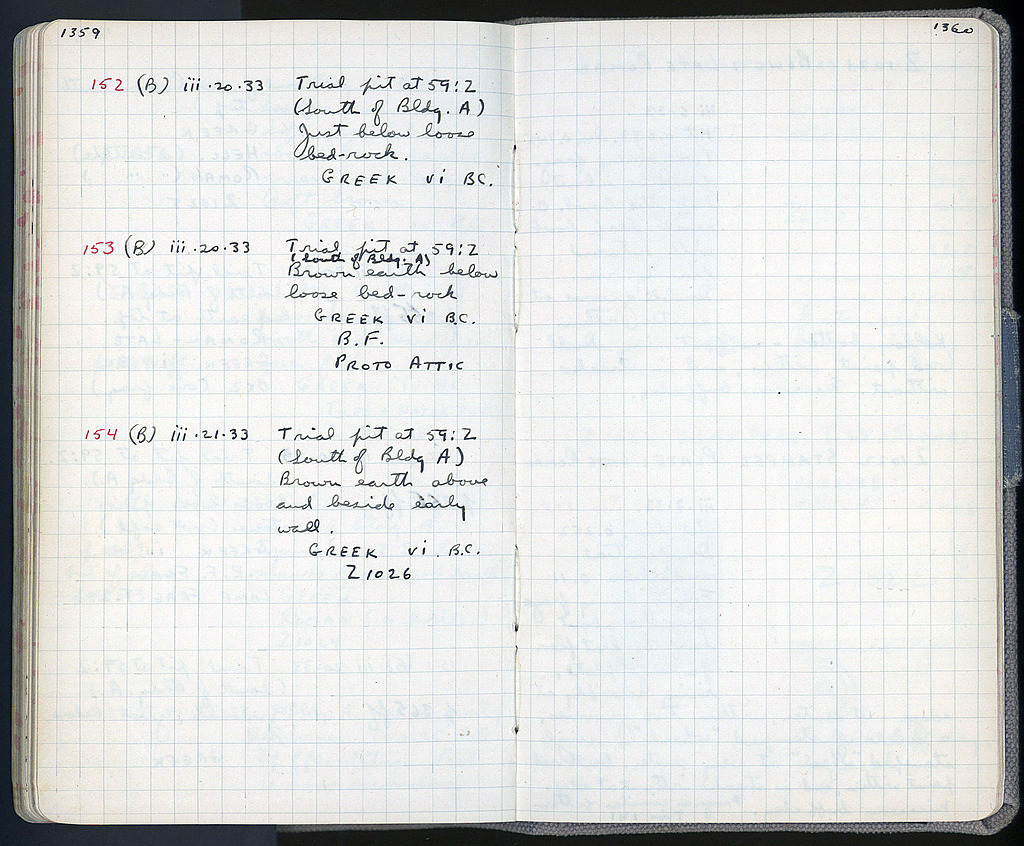 1359
152 (B) iii·20·33 Trial pit at 59:Z
(South of Bldg. A)
Just below loose
bed-rock.
GREEK vi BC.
153 (B) iii·20·33 Trial pit at 59:Z
(South of Bldg. A)
Brown earth below
loose bed-rock
GREEK vi B.C.
B.F.
PROTO ATTIC
154 (B) iii·21·33 Trial pit at 59:Z
(South of Bldg A)
Brown earth above
and beside early
wall.
GREEK vi. B.C.
Z1026
1360